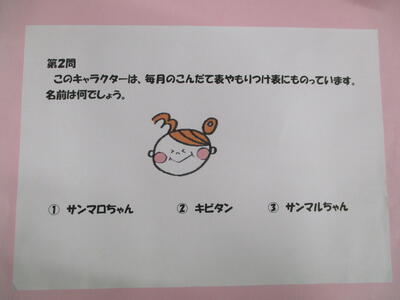 第2問
このキャラクターは、毎月のこんだて表やもりつけ表にものっています。
名前は何でしょう。
① サンマロちゃん ② キビタン ③ サンマルちゃん